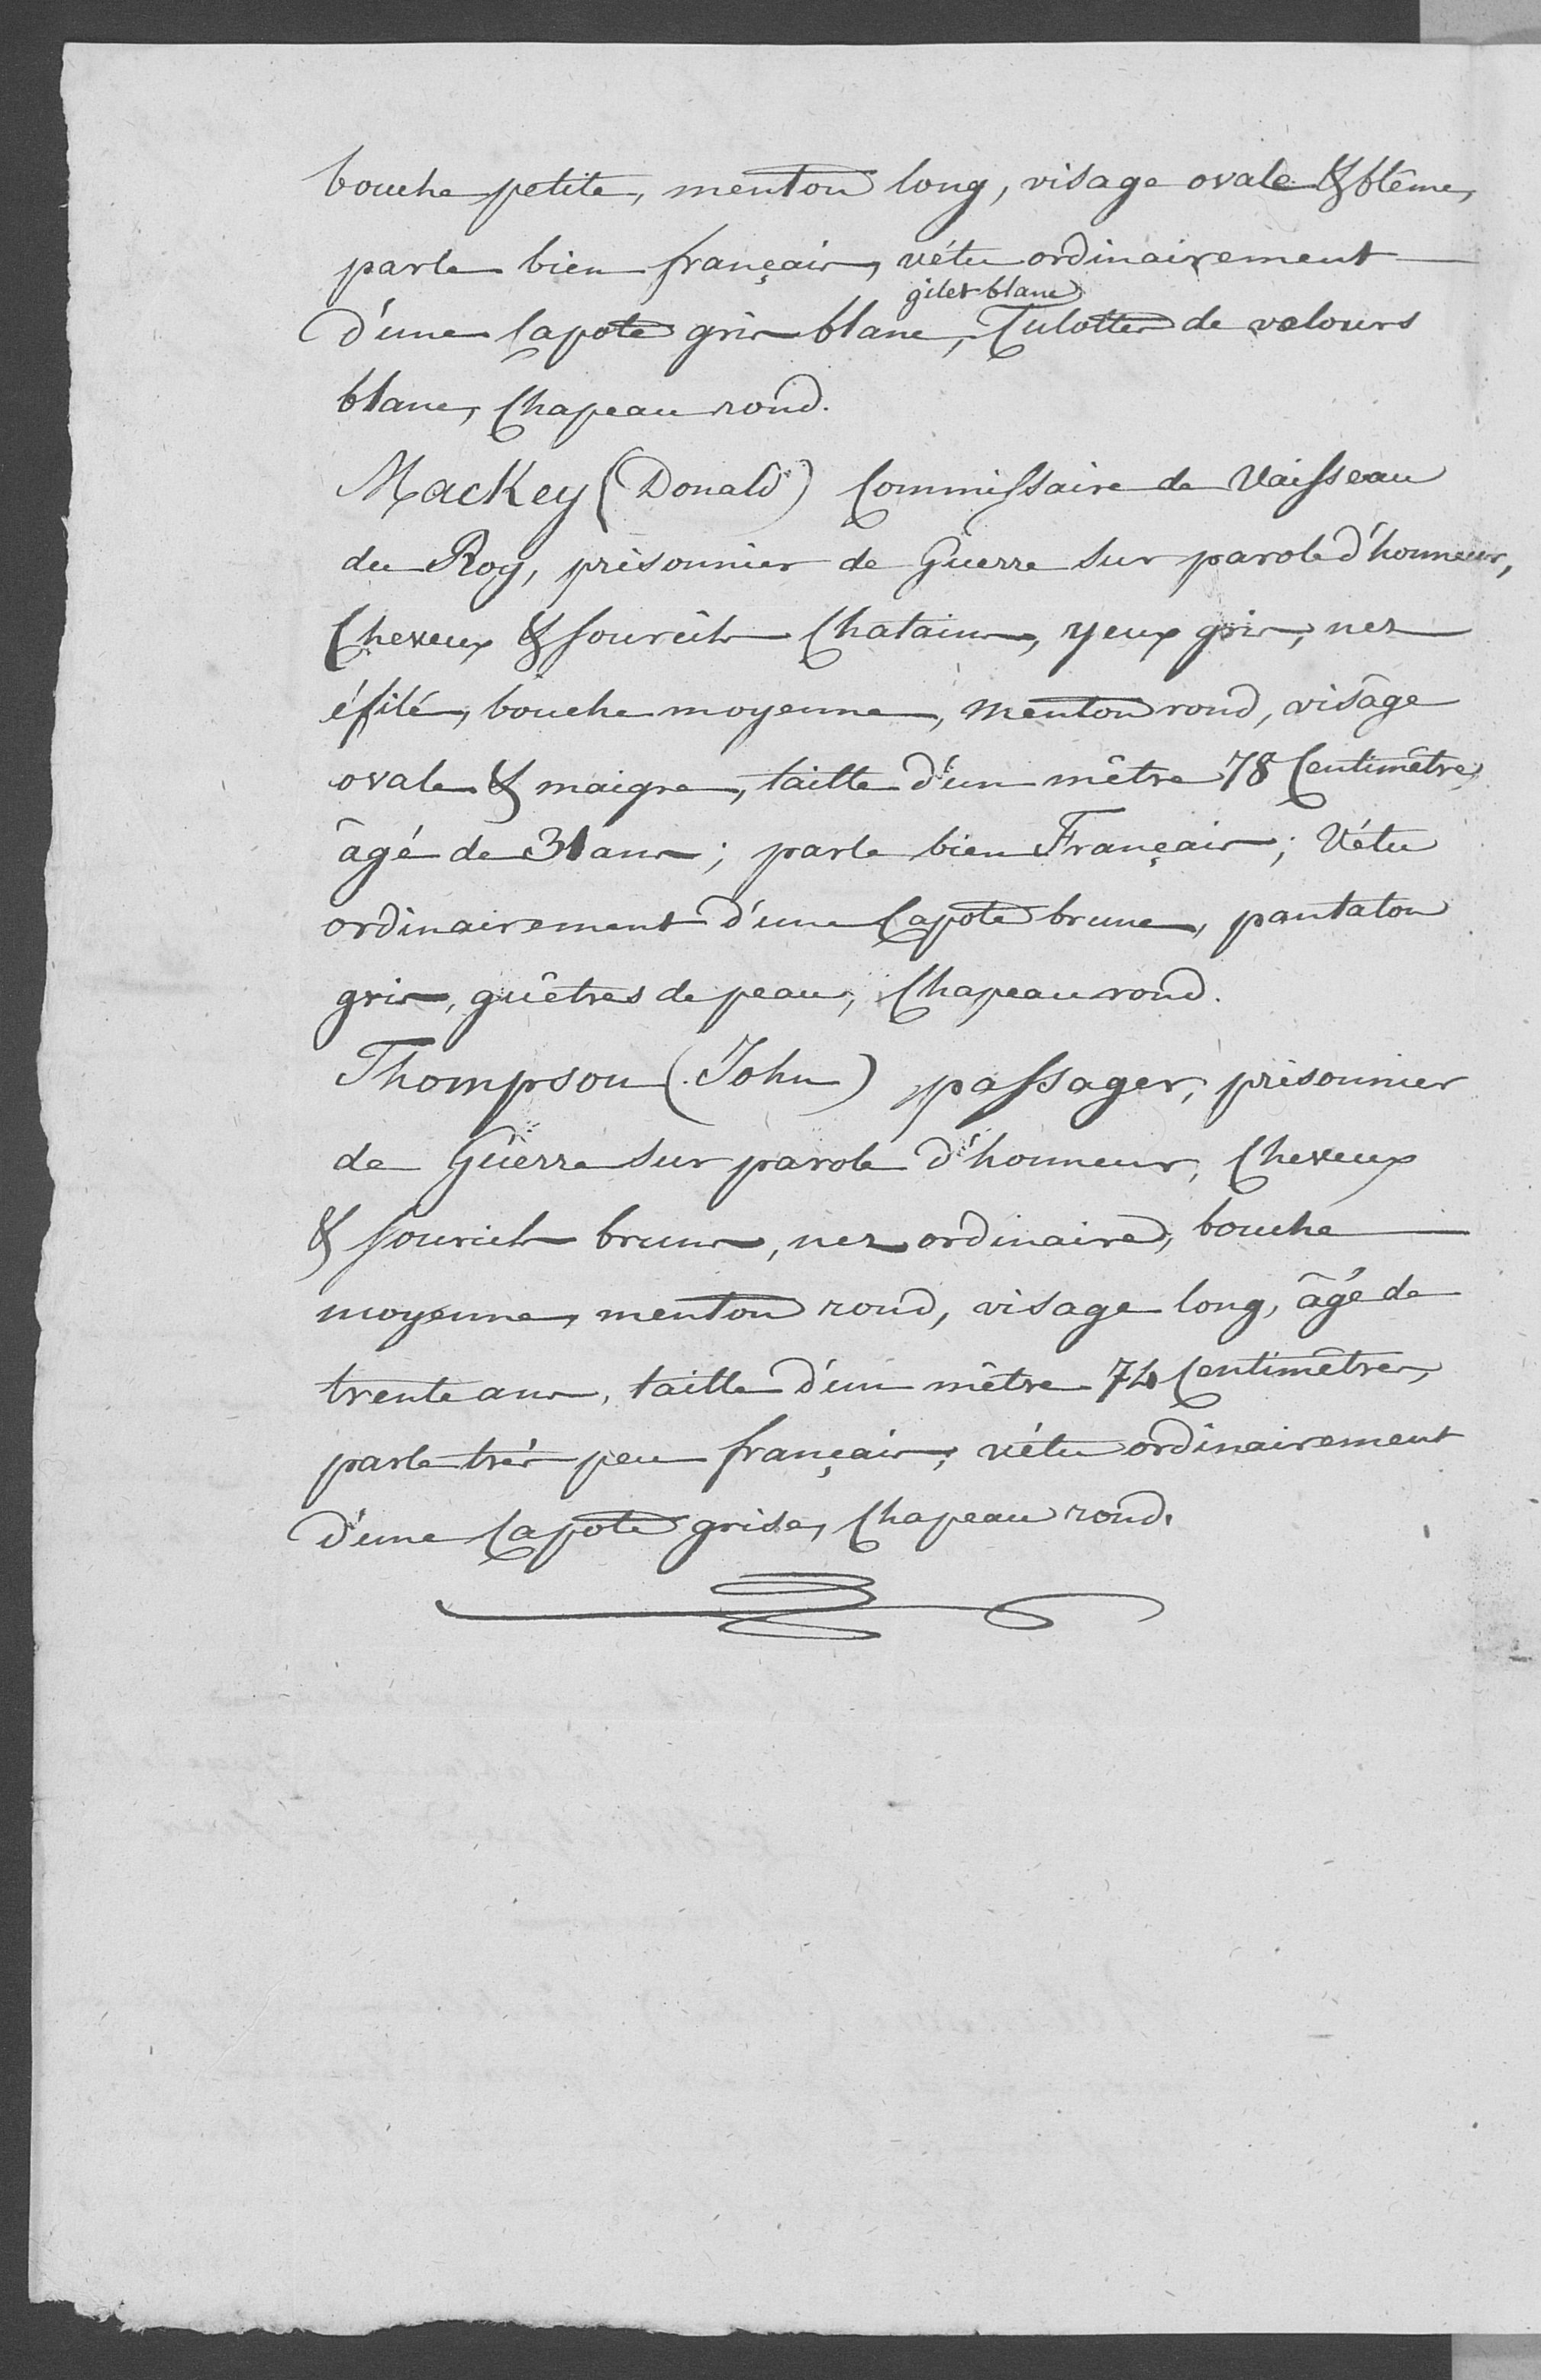 bouche petite, menton long, visage ovale & blême,
parle bien français, vétu ordinairement
gilet blanc
d'une Capote gris blanc, Culottes de velours
blanc, Chapeau rond.
MacKey (Donald) Commissaire de Vaisseau
du Roy, prisonnier de Guerre sur parole d'honneur,
Cheveux & sourcils Chatains, yeux gris, nez
éfilé, bouche moyenne, menton rond, visâge
ovale & maigre, taille d'un mêtre 78 Centimêtres
âgé de 31 ans; parle bien Français; Vétu
ordinairement d'une Capote brune, pantalon
gris, guêtres de peau, Chapeau rond.
Thompson (John) passager, prisonnier
de Guerre sur parole d'honneur, Cheveux
& sourcils bruns, nez ordinaire, bouche
moyenne, menton rond, visage long, âgé de
trente ans, taille d'un mêtre 74 Centimêtres,
parle trés peu français; vétu ordinairement
d'une Capote grise, Chapeau rond.